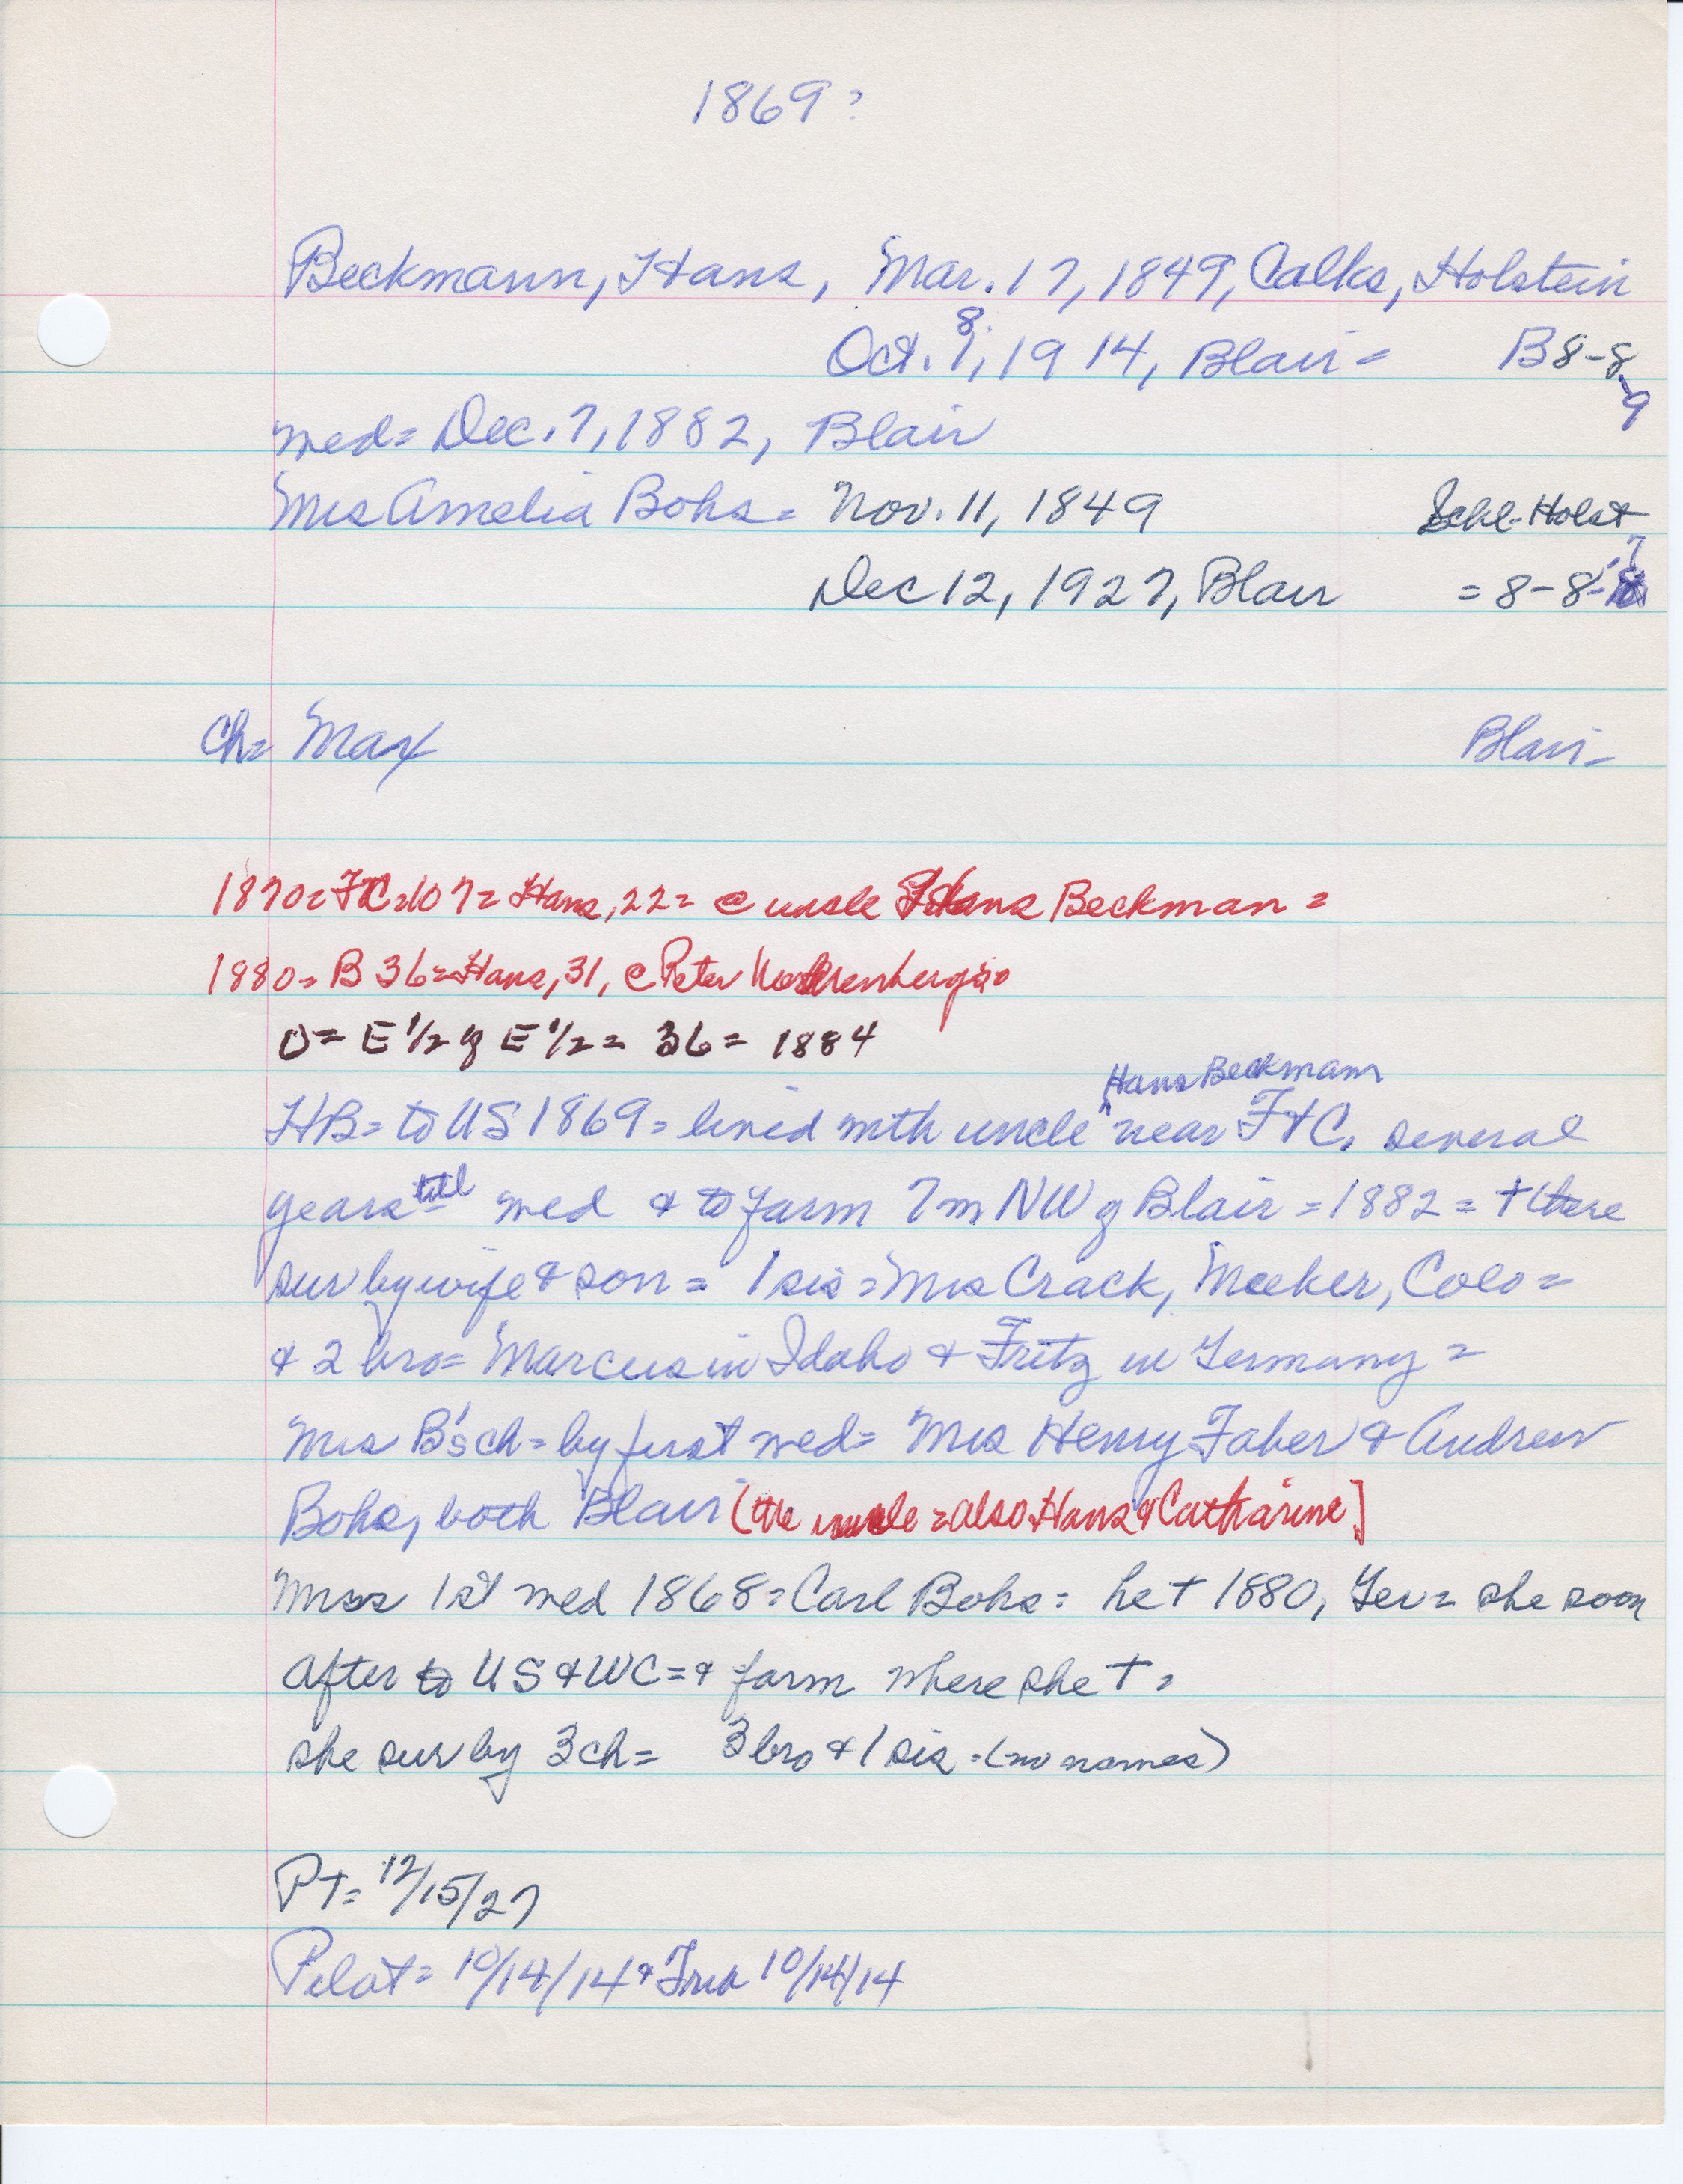 1869?
Beckmann, Hans, Mar. 17, 1849, Calks, Holstein
8
Oct. 7, 1914, Blair = B 8-8-9
med = Dec. 7, 1882, Blair
Mrs Amelia Bohs = Nov. 11, 1849 Schl-Holst
Dec 12, 1927, Blair = 8-8-7
Ch = Max Blair =
1870 = FC = 107 = Hans, 22 = c uncle Hans Beckman =
1880 = B 36 = Hans, 31, c Peter
O = E 1/2 g E 1/2 = 36 = 1884
Hans Beckmann
HB = to US 1869 = lived with uncle near Ft C, several
years till med & to farm 7 m NW g Blair = 1882 = + there
sur by wife & son = 1 sis = Mrs Crack, Meeker, Colo =
& 2 bro = Marcus in Idaho & Fritz in Germany =
Mrs B's ch = by first med = Mrs Henry Faber & Andrew
Bohs, both Blair (the uncle = also Hans & Catharine]
Mrs 1st med 1868 = Carl Bohs = he + 1880, Ger = she soon
after to US & WC = & farm where she + =
she sur by 3 ch = 3 bro & 1 sis = (no names)
PT = 12/15/27
Pilot = 10/14/14 & Trib 10/14/14